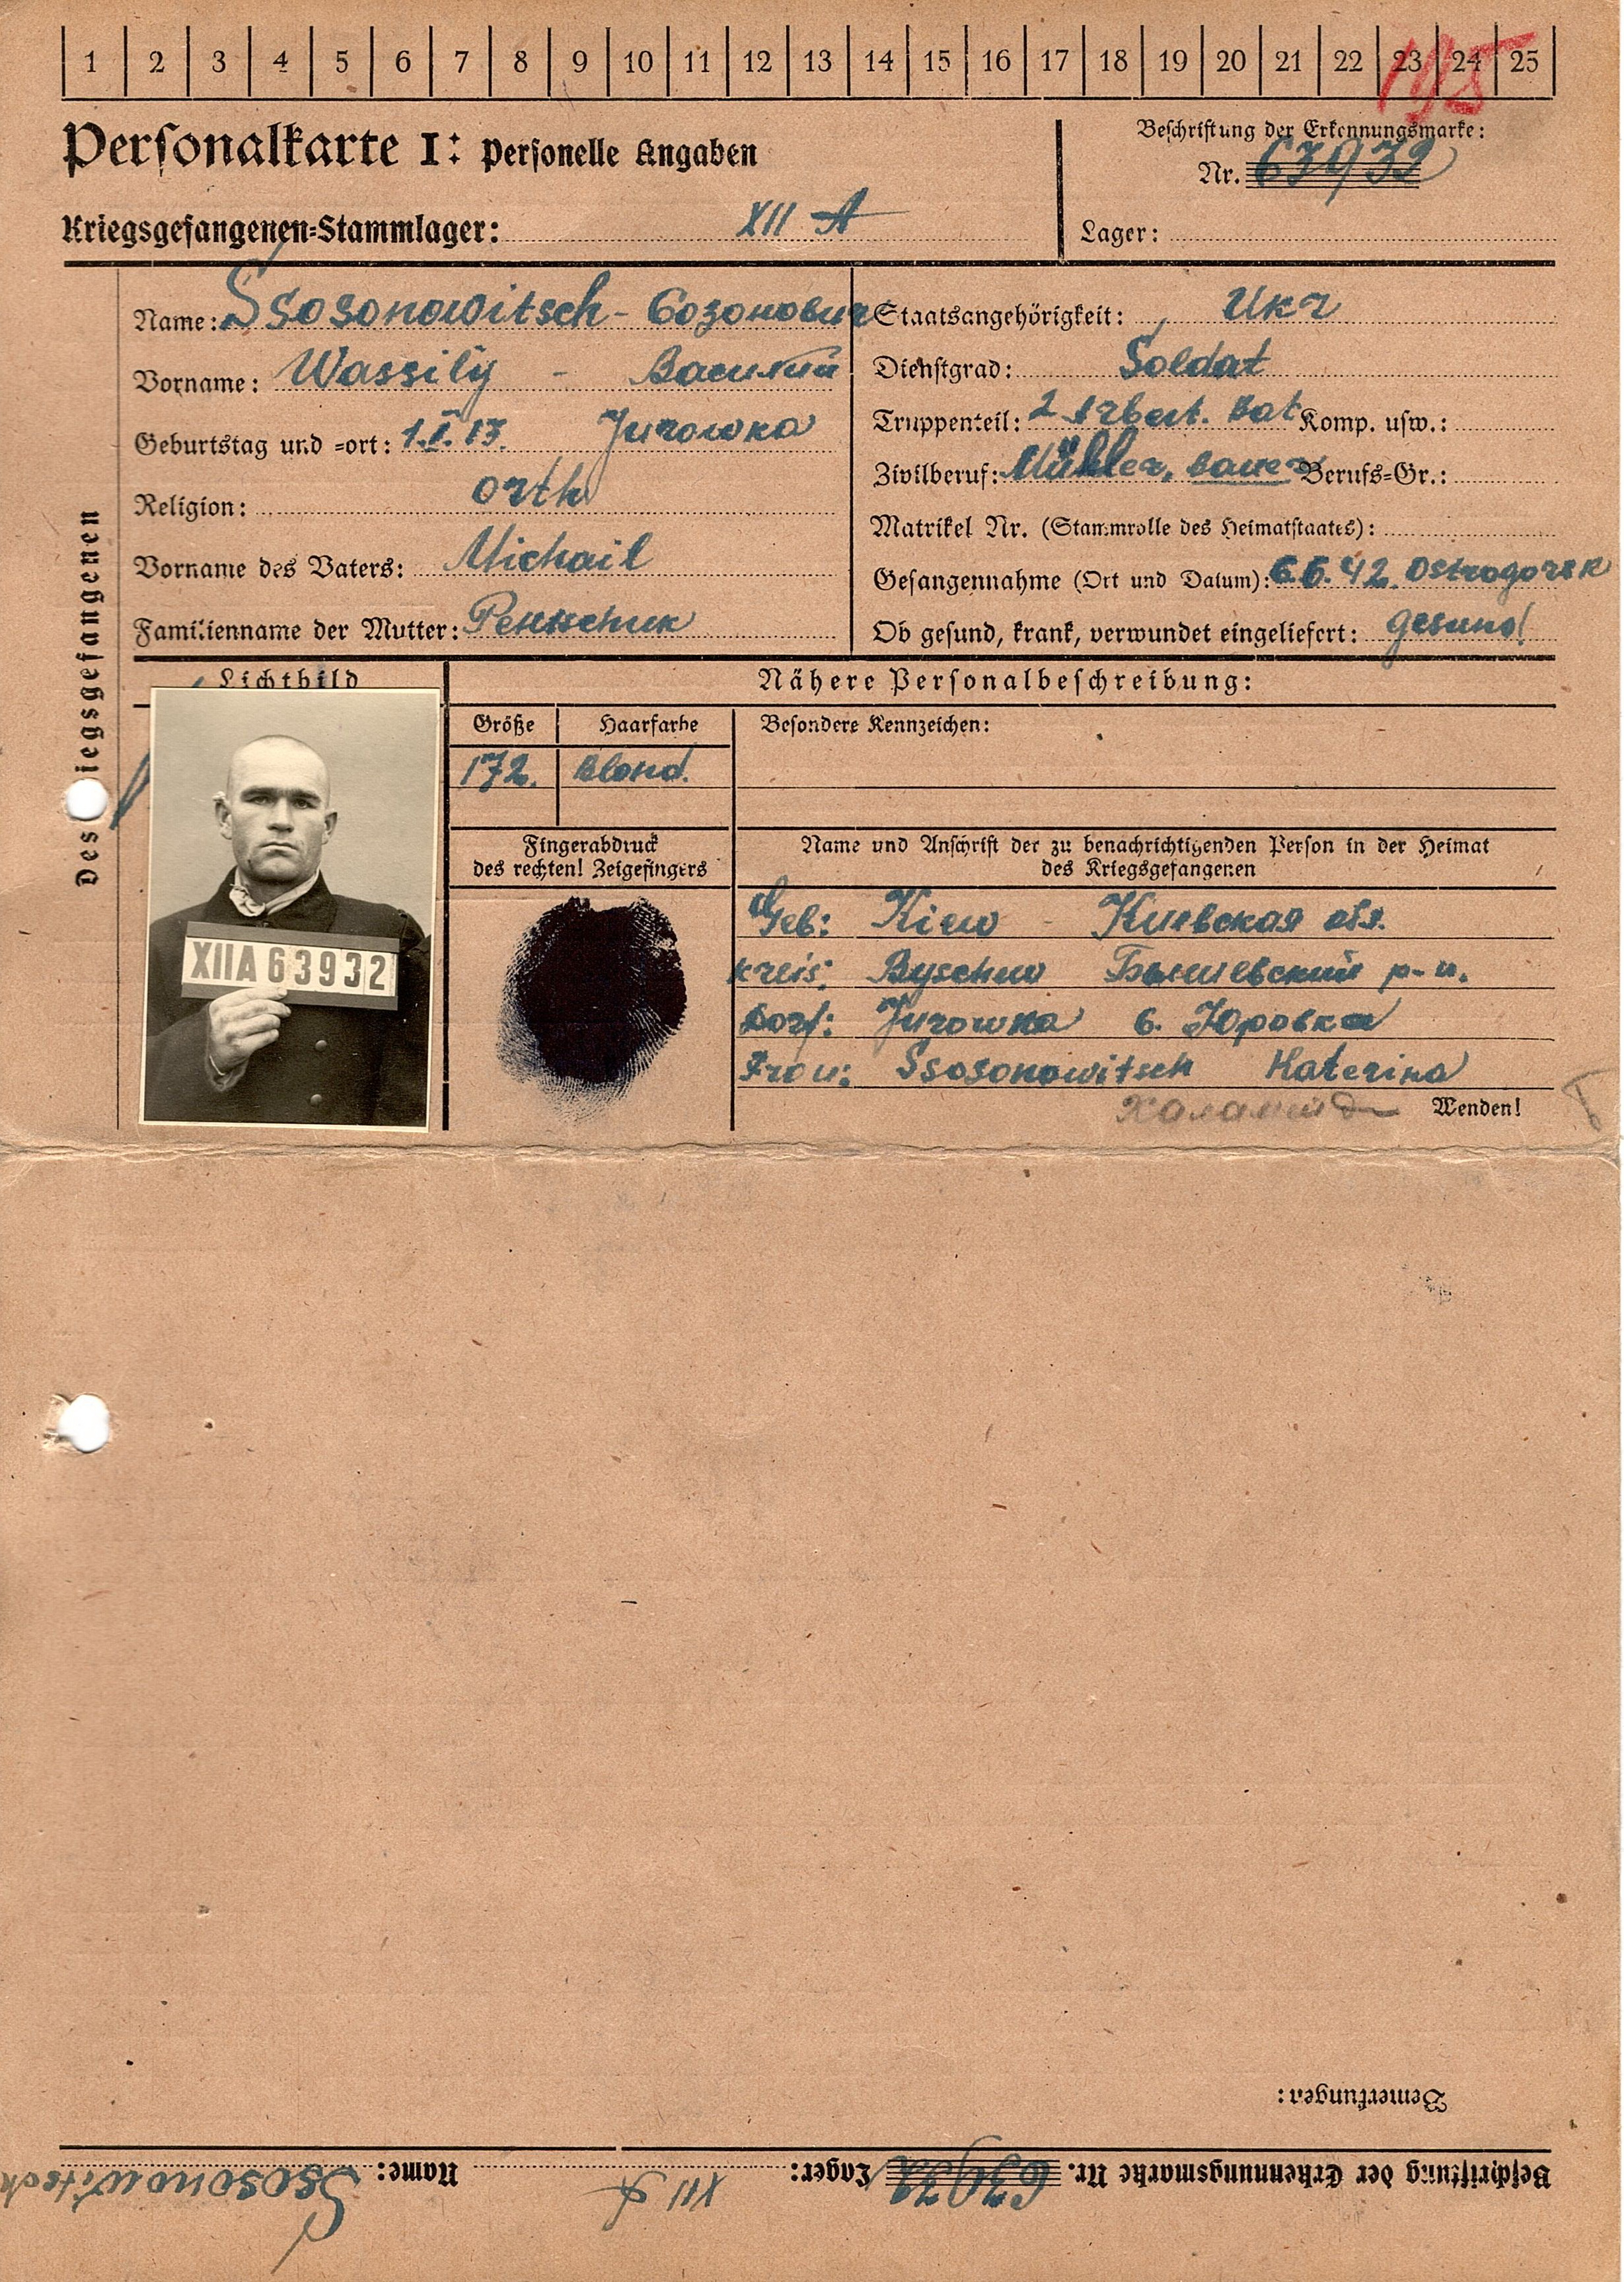 1 2 3 4 5 6 7 8 9 10 11 12 13 14 15 16 17 18 19 20 21 22 23 24 25
Personalkarte I: Personelle Angaben
Beschriftung der Erkennungsmarke:
Nr. 63932
Kriegsgefangenen-Stammlager: XII A
Lager:
Des Kriegsgefangenen
Name: Ssosonowitsch - Созонович
Vorname: Wassily - Василий
Geburtstag und -ort: 1.I.13. Jurowka
Religion: orth
Vorname des Vaters: Michail
Familienname der Mutter:
Staatsangehörigkeit: Ukr
Dienstgrad: Soldat
Truppenteil: 2 Arbeit. Bat Komp. usw.:
Zivilberuf: Mühler, Bauer Berufs-Gr.:
Matrikel Nr. (Stammrolle des Heimatstaates):
Gefangennahme (Ort und Datum): 6.6.42. Ostrogorsk
Ob gesund, krank, verwundet eingeliefert: gesund
Lichtbild
XIIA 63932
Nähere Personalbeschreibung:
Größe Haarfarbe Besondere Kennzeichen:
172. Blond.
Fingerabdruck
des rechten! Zeigefingers
Name und Anschrift der zu benachrichtigenden Person in der Heimat
des Kriegsgefangenen
Geb: Kiew - Киевская обл.
Kreis: Byschew Бышевский р-н.
Dorf: Jurowka с. Юровка
Frau: Ssosonowitsch Katerina
Wenden!
Bemerkungen:
Beschriftung der Erkennungsmarke Nr. 63932 Lager: XII A Name: Ssosonowitsch